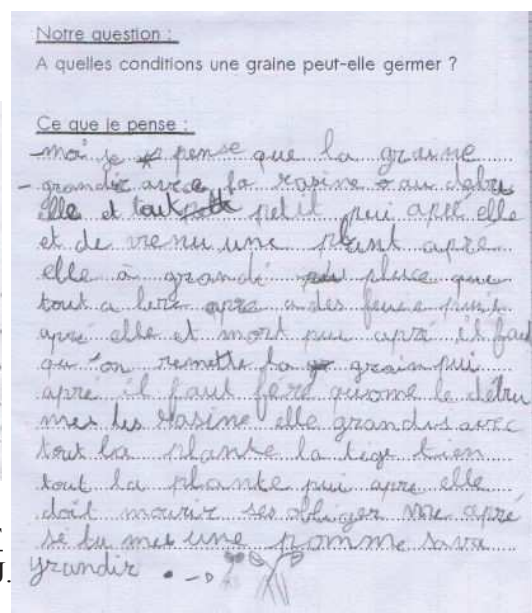 Notre question :
A quelles conditions une graine peut-elle germer ?
Ce que je pense :
- moi je pense que la graine
- grandir avec la rasine au debu
elle et tout petit pui apré elle
et de venu une plant apré
elle à grandi pluce que
tout a lere apre a des feuce puis
apré elle et mort pui apré il fau
qu'on remette la grain pui
apré il faut fere qusome le débu
mes les rasine elle grandis avec
tout la plante la tige tien
tout la plante pui apre elle
doit mourir ses obliger me apré
sé tu met une pomme sava
grandir